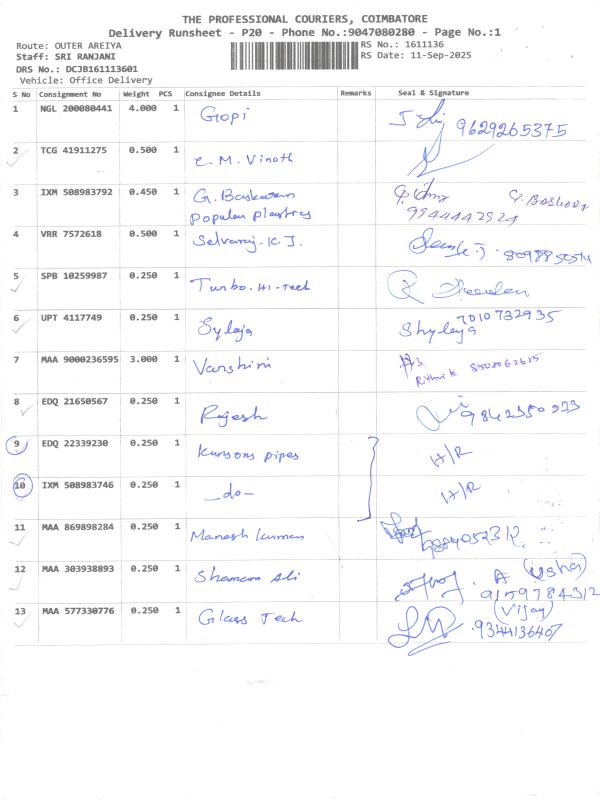 THE PROFESSIONAL COURIERS, COIMBATORE
Delivery Runsheet - P20 - Phone No.:9047080280 - Page No.:1
Route: OUTER AREIYA RS No.: 1611136
Staff: SRI RANJANI RS Date: 11-Sep-2025
DRS No.: DCJB161113601
Vehicle: Office Delivery
S No Consignment No Weight PCS Consignee Details Remarks Seal & Signature
1 NGL 200080441 4.000 1 Gopi 9629265375
2 TCG 41911275 0.500 1 C. M. Vinoth
3 IXM 508983792 0.450 1 G. Baskaran G. Baskara
Popular plastics 9944442924
4 VRR 7572618 0.500 1 Selvaraj. K. J.
5 SPB 10259987 0.250 1 Turbo. Hi-Tech
6 UPT 4117749 0.250 1 Sylaja Shylaja 7010732935
7 MAA 9000236595 3.000 1 Varshini
Rithnik 8508062615
8 EDQ 21650567 0.250 1 Rajesh 9842350023
9 EDQ 22339230 0.250 1 Kunsons pipes H/R
10 IXM 508983746 0.250 1 -do- H/R
11 MAA 869898284 0.250 1 Manesh kumar 9884052312
12 MAA 303938893 0.250 1 Shamam Ali A (Usha)
9159784312
13 MAA 577330776 0.250 1 Glass Tech (Vijay)
9344136407